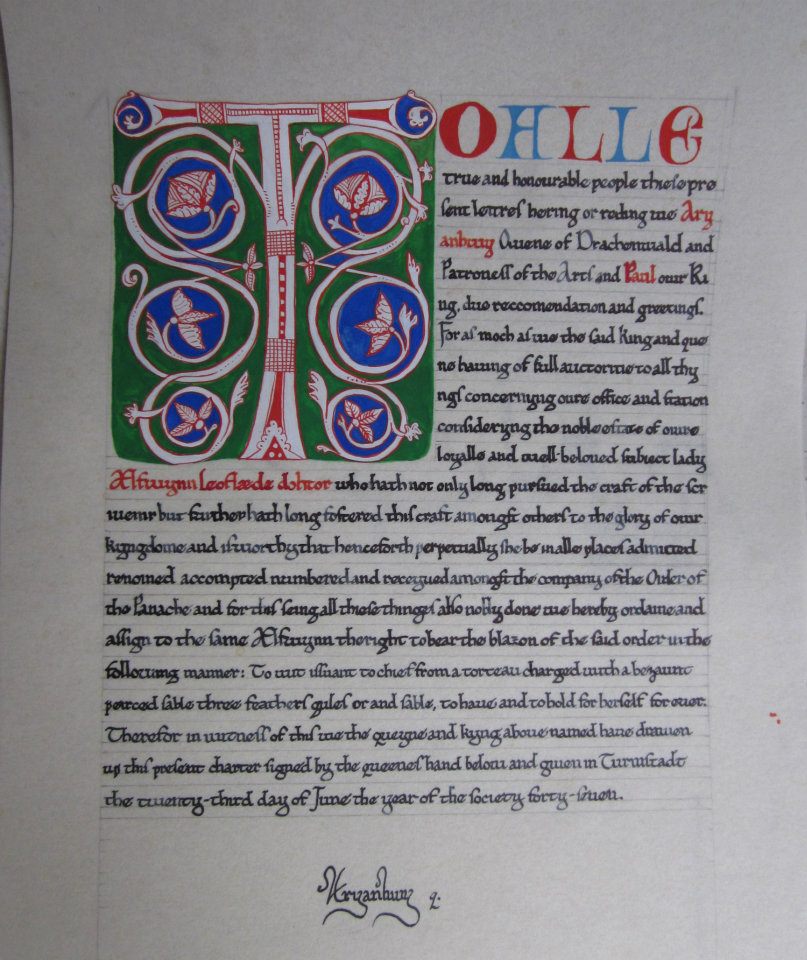 TO ALLE
true and honourable people these pre
sent lettres hering or reding we Ary
anhwy Quene of Drachenwald and
Patroness of the Arts and Paul our Ki
ng, due reccomendation and greetings.
For as moch as we the said King and que
ne having of full auctorite to all thy
ngs concernyng oure office and station
consideryng the noble estate of oure
loyalle and well-beloved subiect lady
Ælfwynn Leoflæde dohtor who hath not only long pursued the craft of the scr
but further hath long fostered this craft amongst others to the glory of our
kyngdome and is worthy that henceforth perpetually she be in alle places admitted
renomed accompted numbered and receyued amongst the company of the Order of
the Panache and for this seing all these thinges also nobly done we hereby ordaine and
assign to the same Ælfwynn the right to bear the blazon of the said order in the
following manner: To wit issuant to chief from a torteau charged with a bezaunt
pearced sable three feathers gules or and sable, to haue and to hold for herself for ouer.
Therefor in witness of this we the queyne and kyng above named have drawen
up this present charter signed by the queenes hand below and given in Turmstadt
the twenty-third day of June the year of the society forty-seven.
Aryanhwy q.